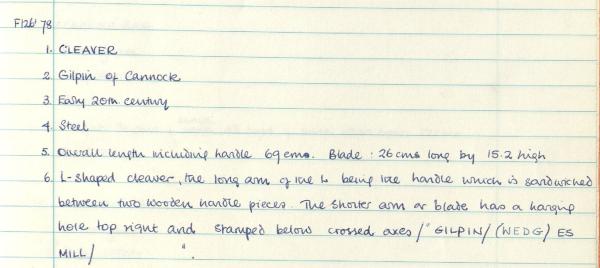 F126' 78
1. CLEAVER
2. Gilpin of Cannock
3. Early 20th century
4. Steel
5. Overall length including handle 69 cms. Blade : 26 cms long by 15.2 high
6. L-shaped cleaver, the long arm of the L being the handle which is sandwiched
between two wooden handle pieces. The shorter arm or blade has a hanging
hole top right and stamped below crossed axes /" GILPIN / (WEDG / ES
MILL / ".